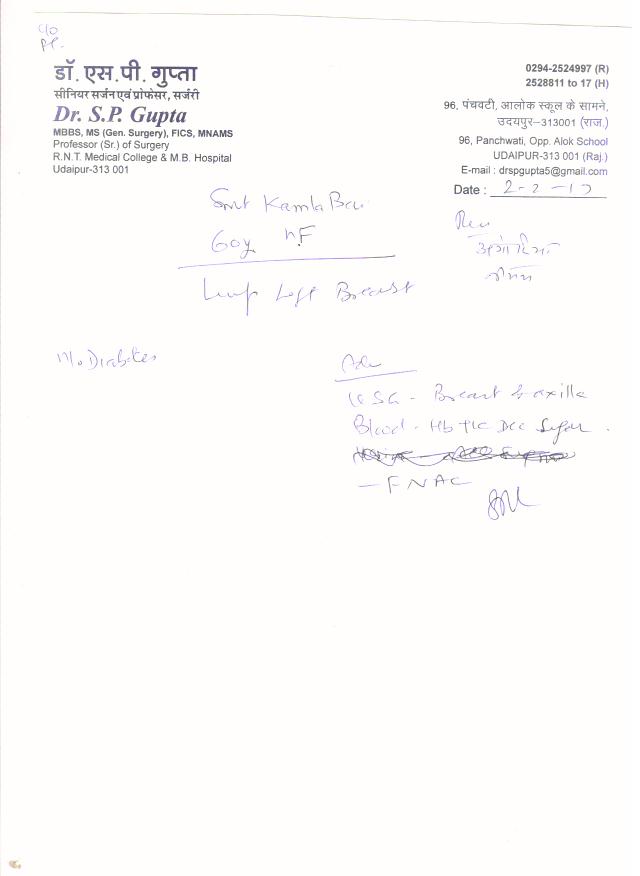 डॉ. एस.पी. गुप्ता
सीनियर सर्जन एवं प्रोफेसर, सर्जरी
Dr. S.P. Gupta
MBBS, MS (Gen. Surgery), FICS, MNAMS
Professor (Sr.) of Surgery
R.N.T. Medical College & M.B. Hospital
Udaipur-313 001
0294-2524997 (R)
2528811 to 17 (H)
96, पंचवटी, आलोक स्कूल के सामने,
उदयपुर–313001 (राज.)
96, Panchwati, Opp. Alok School
UDAIPUR-313 001 (Raj.)
E-mail : drspgupta5@gmail.com
Date : 2-2-17
Smt Kamla Bai
60y F
Lump Left Breast
Diabetes
Adv
USG - Breast & axilla
Blood - Hb TLC DLC Sugar.
- FNAC